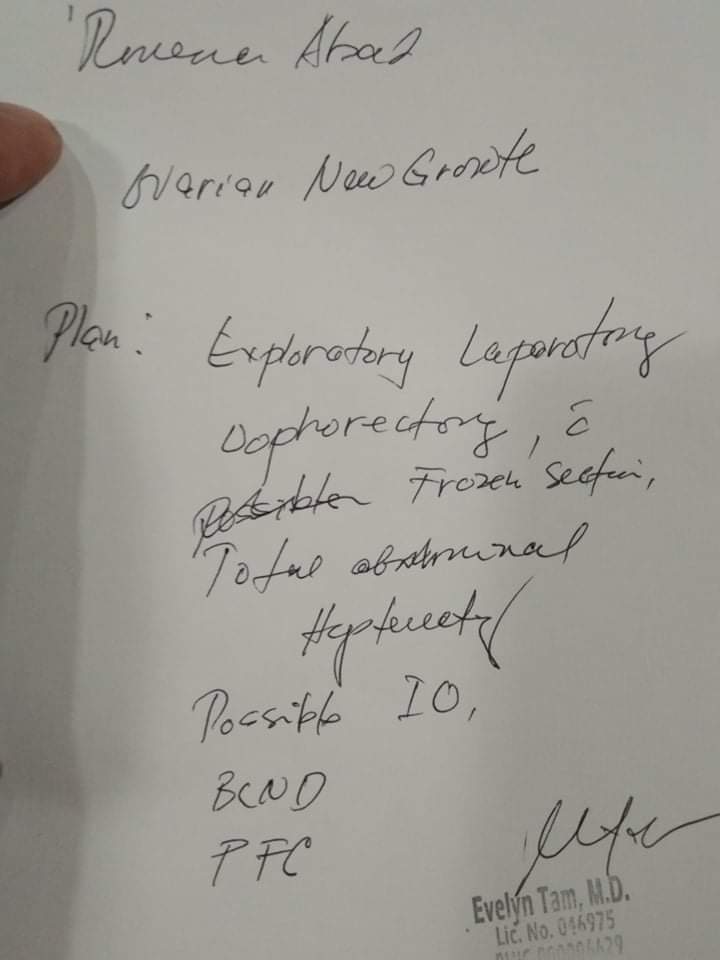 Rowena Abad
Ovarian New Growth
Plan: Exploratory Laparotomy
Oophorectomy, c̄
Possible Frozen section,
Total abdominal
Hysterectomy
Possible IO,
BLND
PFC
Evelyn Tam, M.D.
Lic. No. 046975